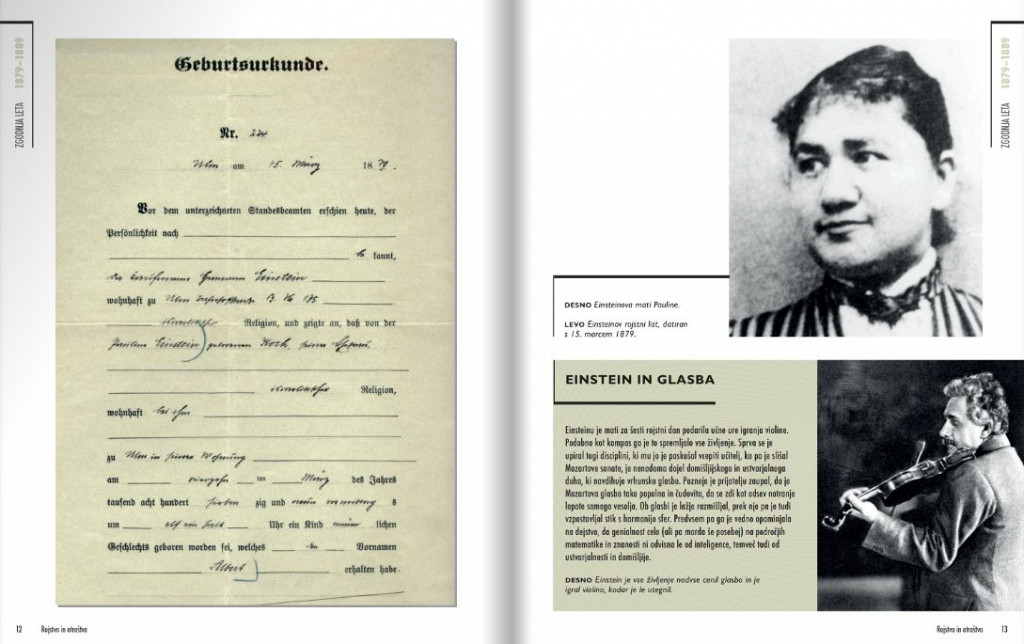 ZGODNJA LETA 1879–1889
Geburtsurkunde.
Nr. 224
Ulm am 15. März 1879.
Vor dem unterzeichneten Standesbeamten erschien heute, der
Persönlichkeit nach
kannt,
Einstein
wohnhaft zu Ulm
Religion, und zeigte an, daß von der
Pauline Einstein geborenen Koch, seiner Ehefrau,
Religion,
wohnhaft bei ihm
zu Ulm in seiner Wohnung
am vierzehn ten März des Jahres
tausend acht hundert sieben zig und neun vormittags s
um elf ein halb Uhr ein Kind männ lichen
Geschlechts geboren worden sei, welches Vornamen
Albert erhalten habe.
12 Rojstvo in otroštvo
ZGODNJA LETA 1879–1889
DESNO Einsteinova mati Pauline.
LEVO Einsteinov rojstni list, datiran
s 15. marcem 1879.
EINSTEIN IN GLASBA
Einsteinu je mati za šesti rojstni dan podarila učne ure igranja violine.
Podobno kot kompas ga je to spremljalo vse življenje. Sprva se je
upiral togi disciplini, ki mu jo je poskušal vcepiti učitelj, ko pa je slišal
Mozartove sonate, je nenadoma dojel domišljijskega in ustvarjalnega
duha, ki navdihuje vrhunsko glasbo. Pozneje je prijatelju zaupal, da je
Mozartova glasba tako popolna in čudovita, da se zdi kot odsev notranje
lepote samega vesolja. Ob glasbi je lažje razmišljal, prek nje pa je tudi
vzpostavljal stik s harmonijo sfer. Predvsem pa ga je vedno opominjala
na dejstvo, da genialnost celo (ali pa morda še posebej) na področjih
matematike in znanosti ni odvisna le od inteligence, temveč tudi od
ustvarjalnosti in domišljije.
DESNO Einstein je vse življenje nadvse cenil glasbo in je
igral violino, kadar je le utegnil.
Rojstvo in otroštvo 13